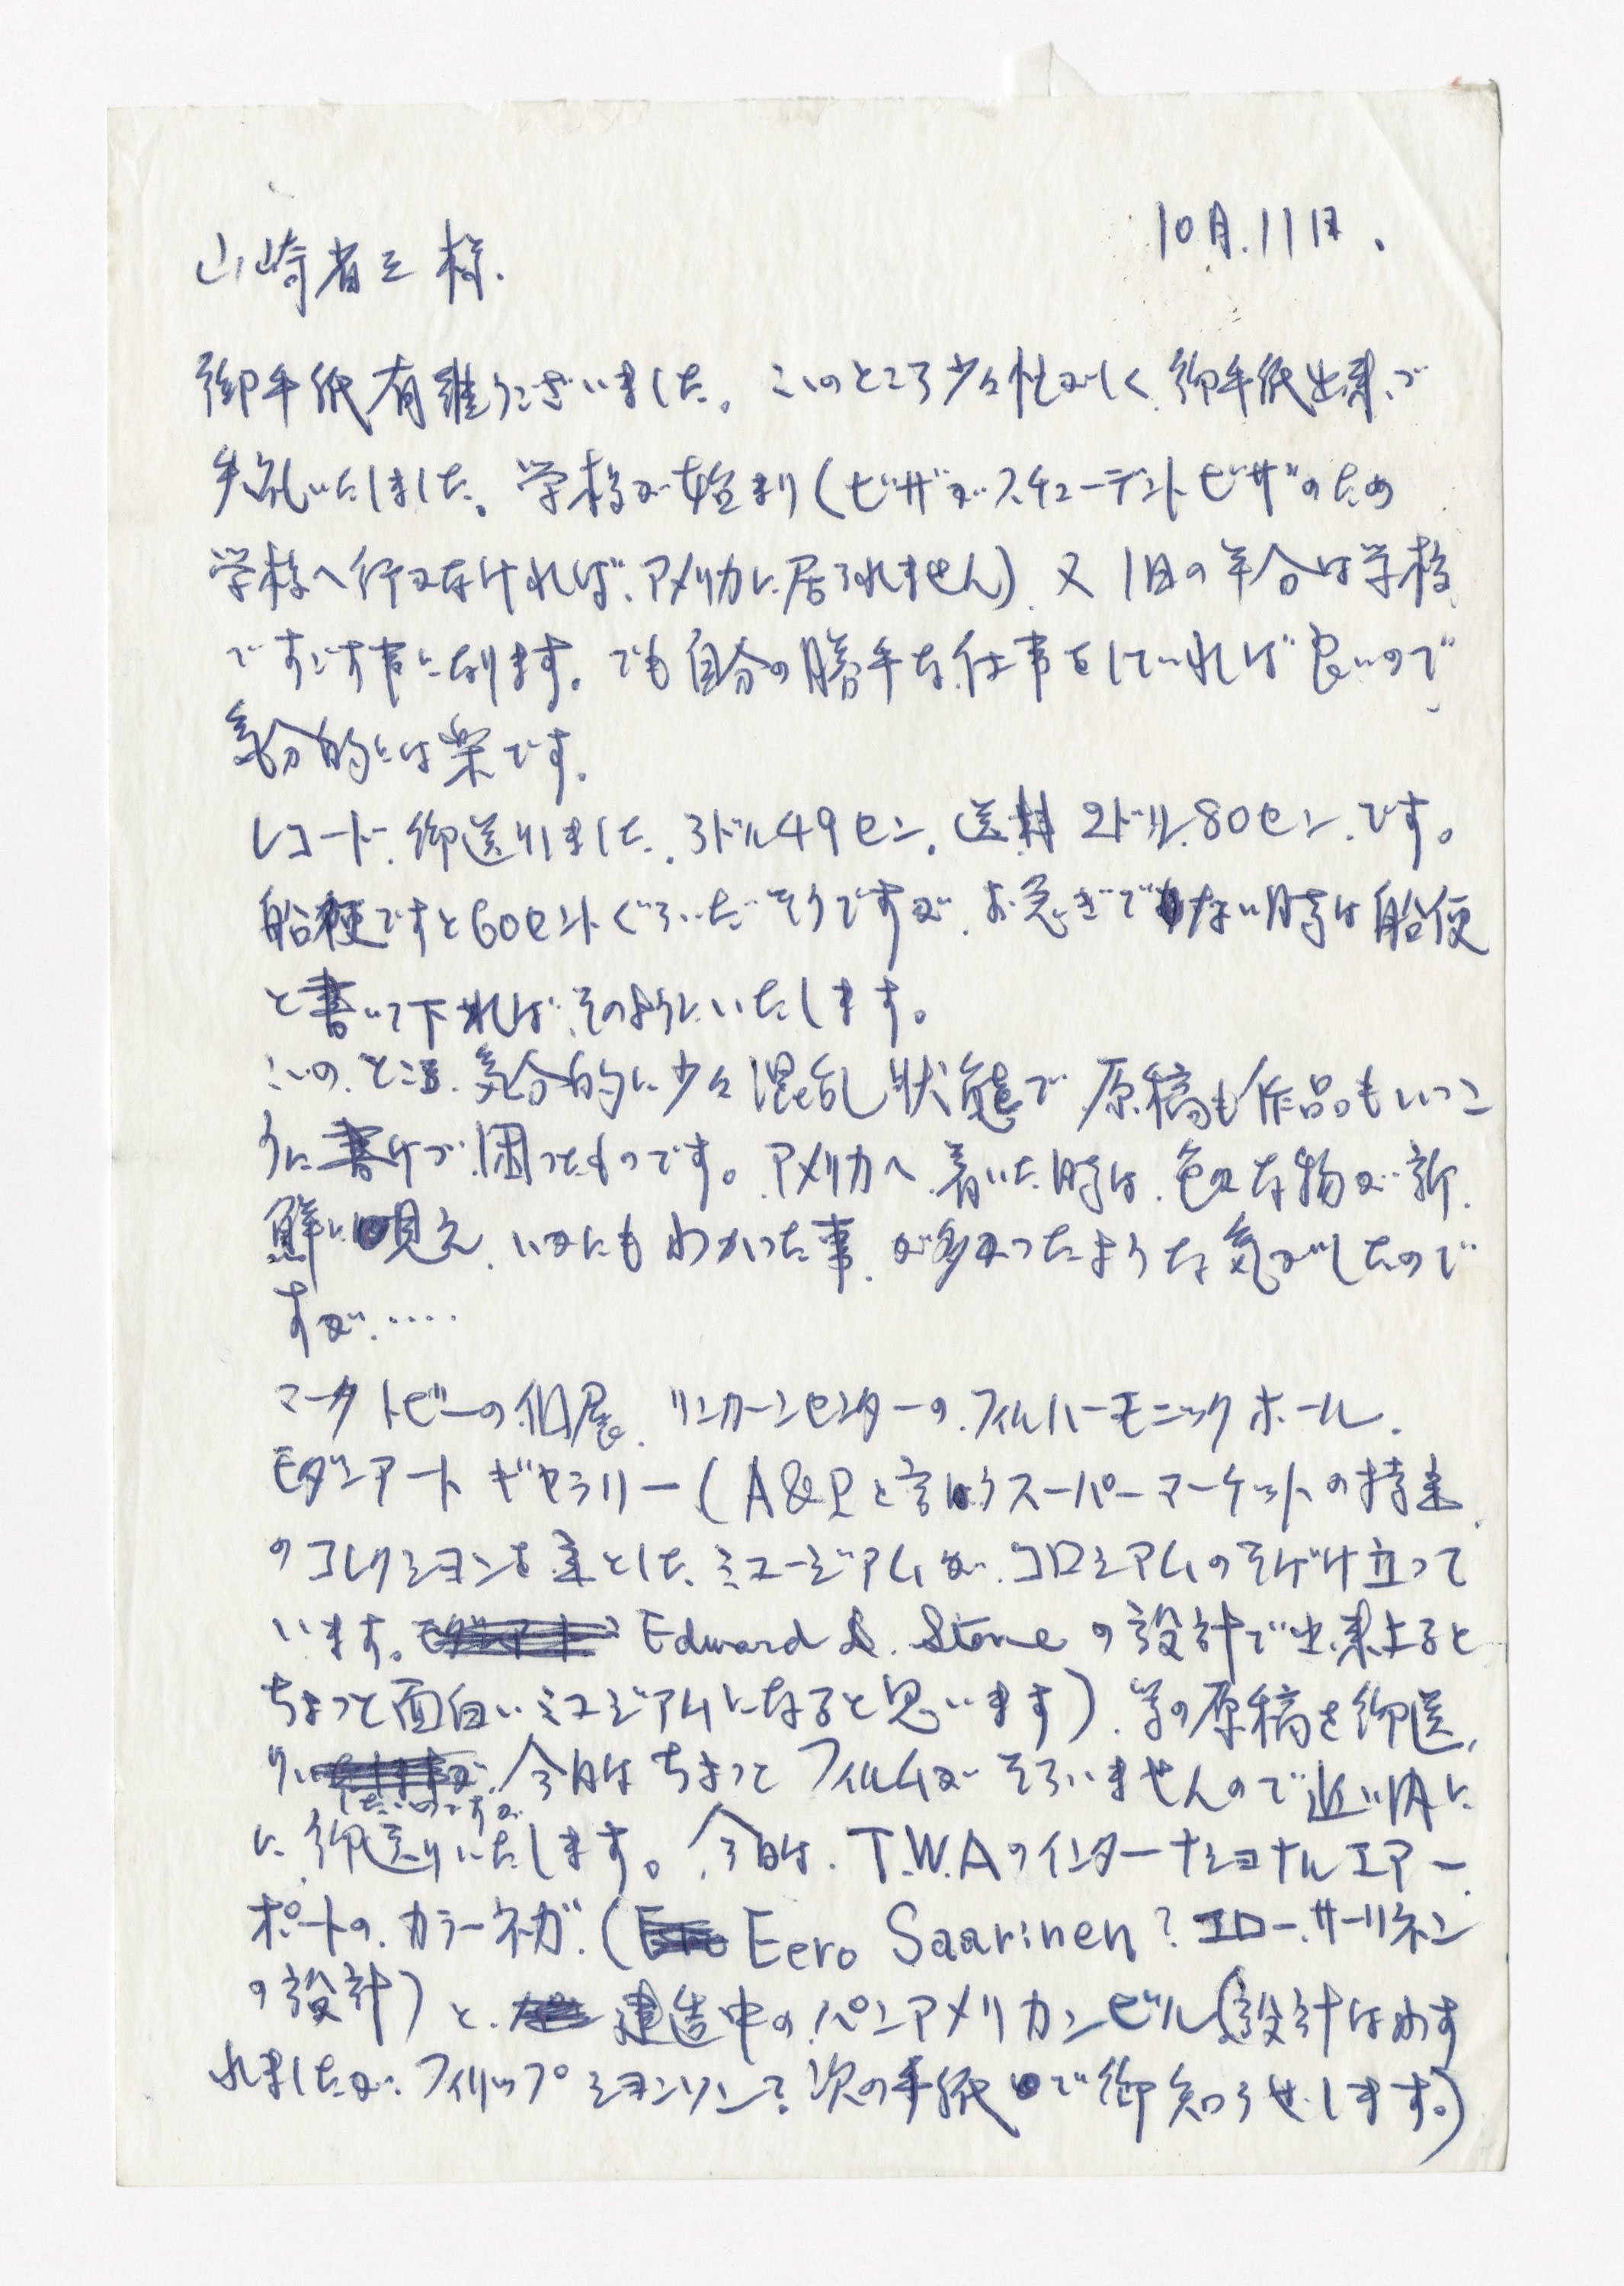 10月.11日.
山崎省三様.
御手紙有難うございました。このところ少々忙がしく御手紙出来ず
失礼いたしました。学校が始まり（ビザがスチューデントビザのため
学校へ行かなければ、アメリカに居られません）又1日の半分は学校
ですごす事になります。でも自分の勝手な仕事をしていれば良いので
気分的には楽です。
レコード.御送りしました.3ドル49セン。送料2ドル.80セン.です。
船便ですと60セントぐらいだそうですが.お急ぎでない時は船便
と書いて下れば.そのようにいたします。
このところ.気分的に少々混乱状態で原稿も作品もいっこ
うに書けず.困ったものです。アメリカへ着いた時は.色々な物が新
鮮に見え.いかにもわかった事.が多かったような気がしたので
すが.....
マークトビーの個展.リンカーンセンターの.フィルハーモニックホール.
モダンアートギャラリー（A&Pと言うスーパーマーケットの
のコレクションを主とした.ミュージアムが.コロシアムのそばに立って
います。Edward D. Stoneの設計で出来上ると
ちょっと面白いミュジアムになると思います）.等の原稿を御送
りしたいのですが.今日はちょっとフィルムがそろいませんので近い内に
に.御送りいたします。今日は.T.W.Aのインターナショナルエアー
ポートの.カラーネガ.（Eero Saarinen?エロー.サーリネン
の設計）と.建造中の.パンアメリカンビル（設計はわす
れましたが.フィリップジョンソン?次の手紙で御知らせします。）